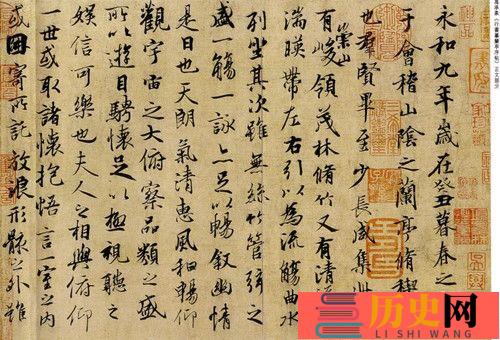 永和九年歲在癸丑暮春之
于會稽山陰之蘭亭脩稧
也群賢畢至少長咸集此
有崇山峻領茂林脩竹又有清
湍暎帶左右引以為流觴曲水
列坐其次雖無絲竹管弦之
盛一觴一詠亦足以暢敘幽情
是日也天朗氣清惠風和暢仰
觀宇宙之大俯察品類之盛
所以遊目騁懷足以極視聽之
娛信可樂也夫人之相與俯仰
一世或取諸懷抱悟言一室之內
或因寄所託放浪形骸之外雖
历史网
LI SHI WANG